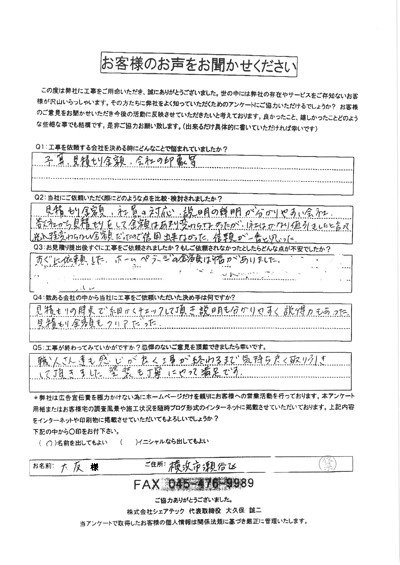 お客様のお声をお聞かせください
この度は弊社に工事をご用命いただき、誠にありがとうございました。世の中には弊社の存在やサービスをご存知ないお客
様が沢山いらっしゃいます。その方たちに弊社をよく知っていただくためのアンケートにご協力いただけるでしょうか? お客様
のご意見をお聞かせいただき今後の活動に反映させていただきたいと考えております。良かったこと、嬉しかったことどのよう
な些細な事でも結構です。是非ご協力お願い致します。(出来るだけ具体的に書いていただければ幸いです)
Q1:工事を依頼する会社を決める時にどんなことで悩まれていましたか?
予算、見積もり金額、会社の印象等
Q2:当社にご依頼いただく際にどのような点を比較・検討されましたか?
見積もり金額、社員の対応、説明の鮮明が分かりやすい会社。
Q3:お見積り提出後すぐに工事をご依頼されましたか?もしご依頼されなかったとしたらどんな点が不安でしたか?
すぐに依頼した。ホームページの金額は幅がありました。
Q4:数ある会社の中から当社に工事をご依頼いただいた決め手は何ですか?
見積もり金額もクリアだった。
Q5:工事が終わってみていかがですか?忌憚のないご意見を頂戴できましたら幸いです。
職人さん達も感じが良く工事が終わるまで気持ち良く取り引き
して頂きました。塗装も丁寧にやって満足です。
*弊社は広告宣伝費を極力かけない為にホームページだけを頼りにお客様への営業活動を行っております。本アンケート
用紙またはお客様宅の調査風景や施工状況を随時ブログ形式のインターネットに掲載させていただいております。上記内容
をインターネットや印刷物に掲載させていただいてもよろしいでしょうか?
下記の中から〇印をお付下さい。
( )名前を出してもよい ( )イニシャルなら出してもよい
お名前: 大友 様 ご住所: 横浜市瀬谷区
FAX 045-476-9989
ご協力ありがとうございました。
株式会社シェアテック 代表取締役 大久保 誠二
当アンケートで取得したお客様の個人情報は関係法規に基づき厳正に管理いたします。